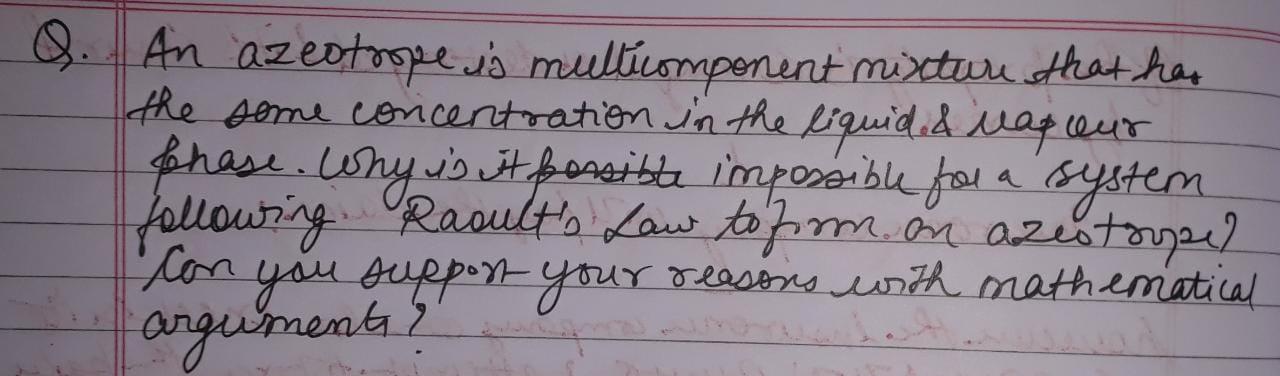 Q. An azeotrope is multicomponent mixture that has
the same concentration in the liquid & vapour
phase. Why is it possible impossible for a system
following Raoult's Law to form an azeotrope?
Can you support your reasons with mathematical
arguments?